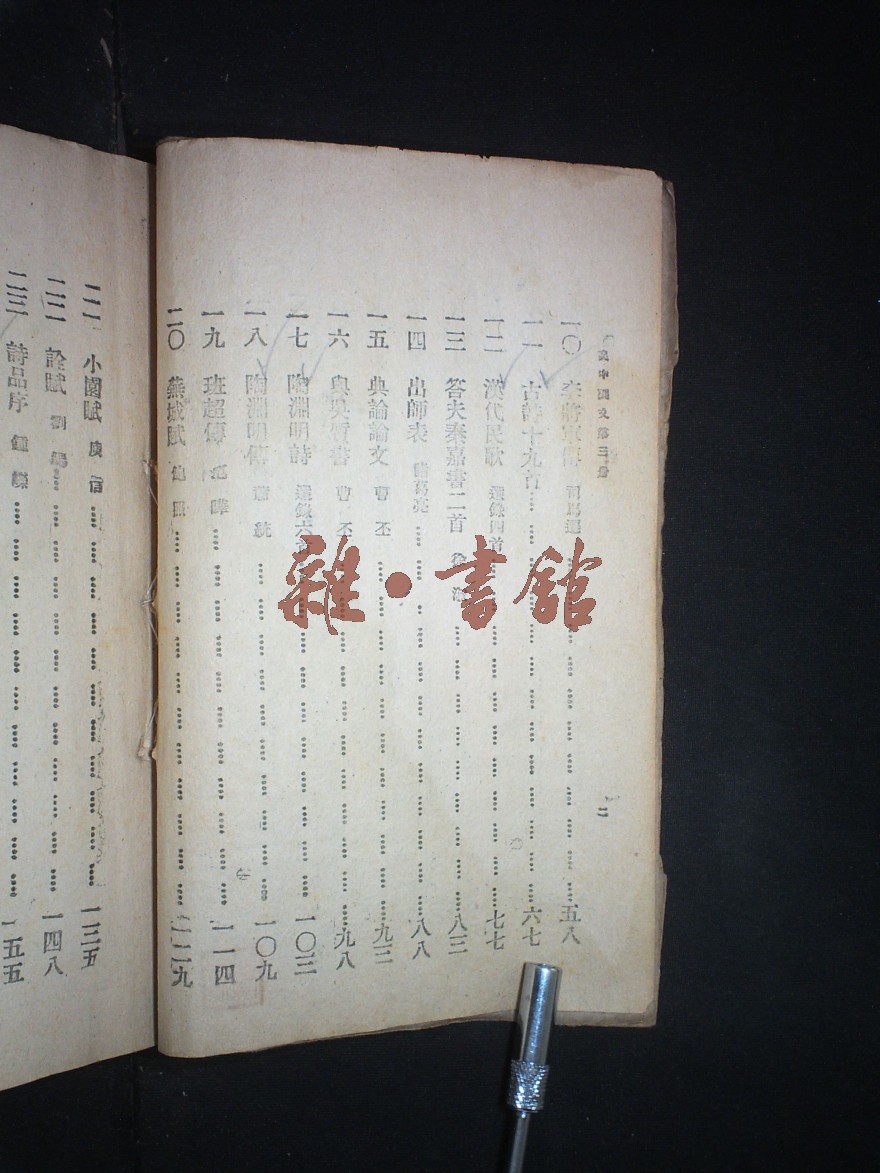 高中國文第三册
二
一〇 李將軍傳 司馬遷 五八
一一 古詩十九首 六七
一二 漢代民歌 選錄四首 七七
一三 答夫秦嘉書二首 徐淑 八三
一四 出師表 諸葛亮 八八
一五 典論論文 曹丕 九三
一六 與吳質書 曹丕 九八
一七 陶淵明詩 選錄六首 一〇三
一八 陶淵明傳 蕭統 一〇九
一九 班超傳 范曄 一一四
二〇 蕪城賦 鮑照 一二九
二一 小園賦 庾信 一三五
二二 詮賦 劉勰 一四八
二三 詩品序 鍾嶸 一五五
雜·書館